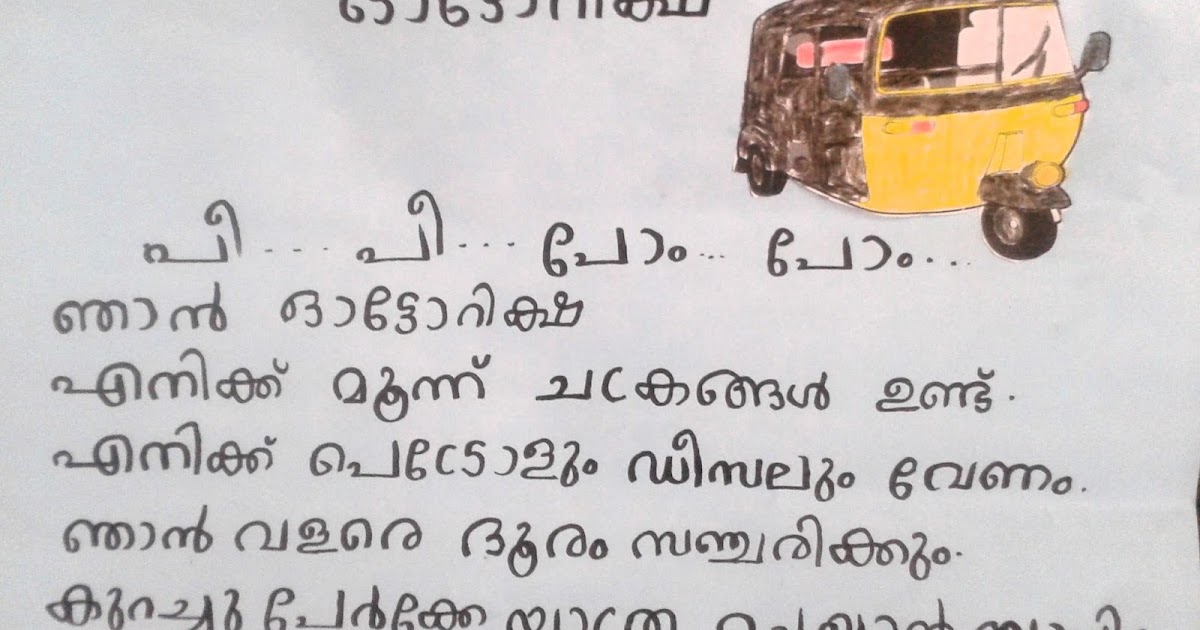 ഓട്ടോറിക്ഷ
പീ.... പീ.... പോം... പോം....
ഞാൻ ഓട്ടോറിക്ഷ
എനിക്ക് മൂന്ന് ചക്രങ്ങൾ ഉണ്ട്.
എനിക്ക് പെട്രോളും ഡീസലും വേണം.
ഞാൻ വളരെ ദൂരം സഞ്ചരിക്കും.
കുറച്ചു പേർക്കേ യാത്ര ചെയ്യാൻ